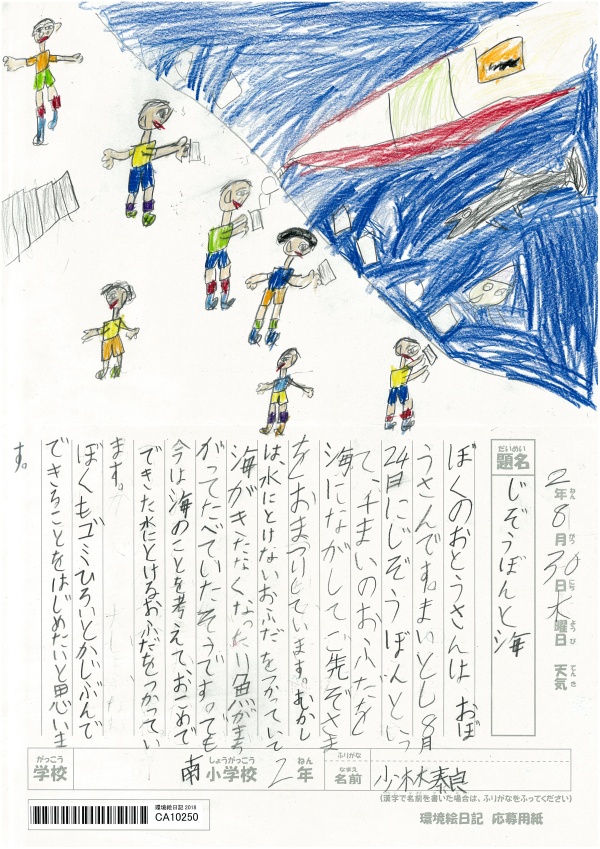 2年8月30日木曜日 天気
ねん がつ にち ようび てんき
だいめい
題名 じぞうぼんと海
ぼくのおとうさんは、おぼ
うさんです。まいとし8月
24日にじぞうぼんという
て、千まいのおふだを
海にながしてご先ぞさま
をおまつりしています。むかし
は、水にとけないおふだをつかっていて
海がきたなくなったり魚がまち
がってたべていたそうです。でも
今は海のことを考えて、おこめで
できた水にとけるおふだをつかってい
ます。
ぼくもゴミひろいとかじぶんで
できることをはじめたいと思いま
す。
がっこう しょうがっこう ねん ふりがな
学校 南小学校 2年 なまえ 名前 小林素良
(漢字で名前を書いた場合は、ふりがなをふってください)
環境絵日記 2018
CA10250
環境絵日記 応募用紙